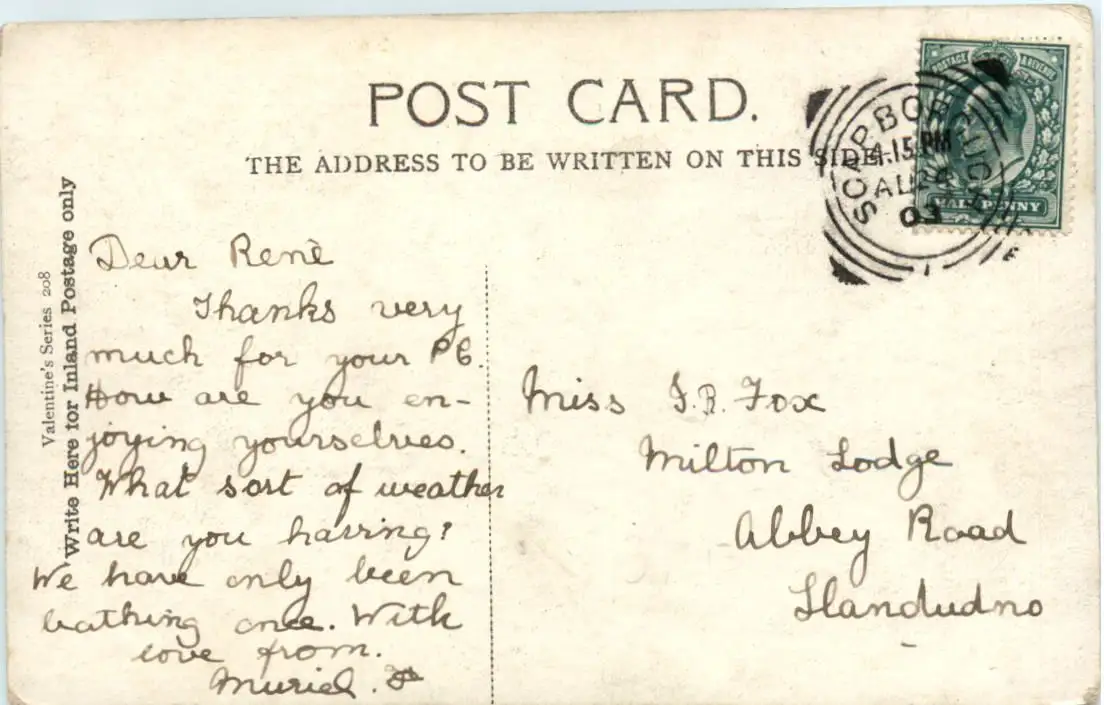 POST CARD.
THE ADDRESS TO BE WRITTEN ON THIS SIDE.
POSTAGE & REVENUE
HALF PENNY
SCARBOROUGH
4.15 PM
AU 26
03
1
Valentine's Series 208
Write Here for Inland Postage only
Dear Renè
Thanks very
much for your PC.
How are you en-
joying yourselves.
What sort of weather
are you having?
We have only been
bathing once. With
love from.
Muriel.
Miss I.B. Fox
Milton Lodge
Abbey Road
Llandudno